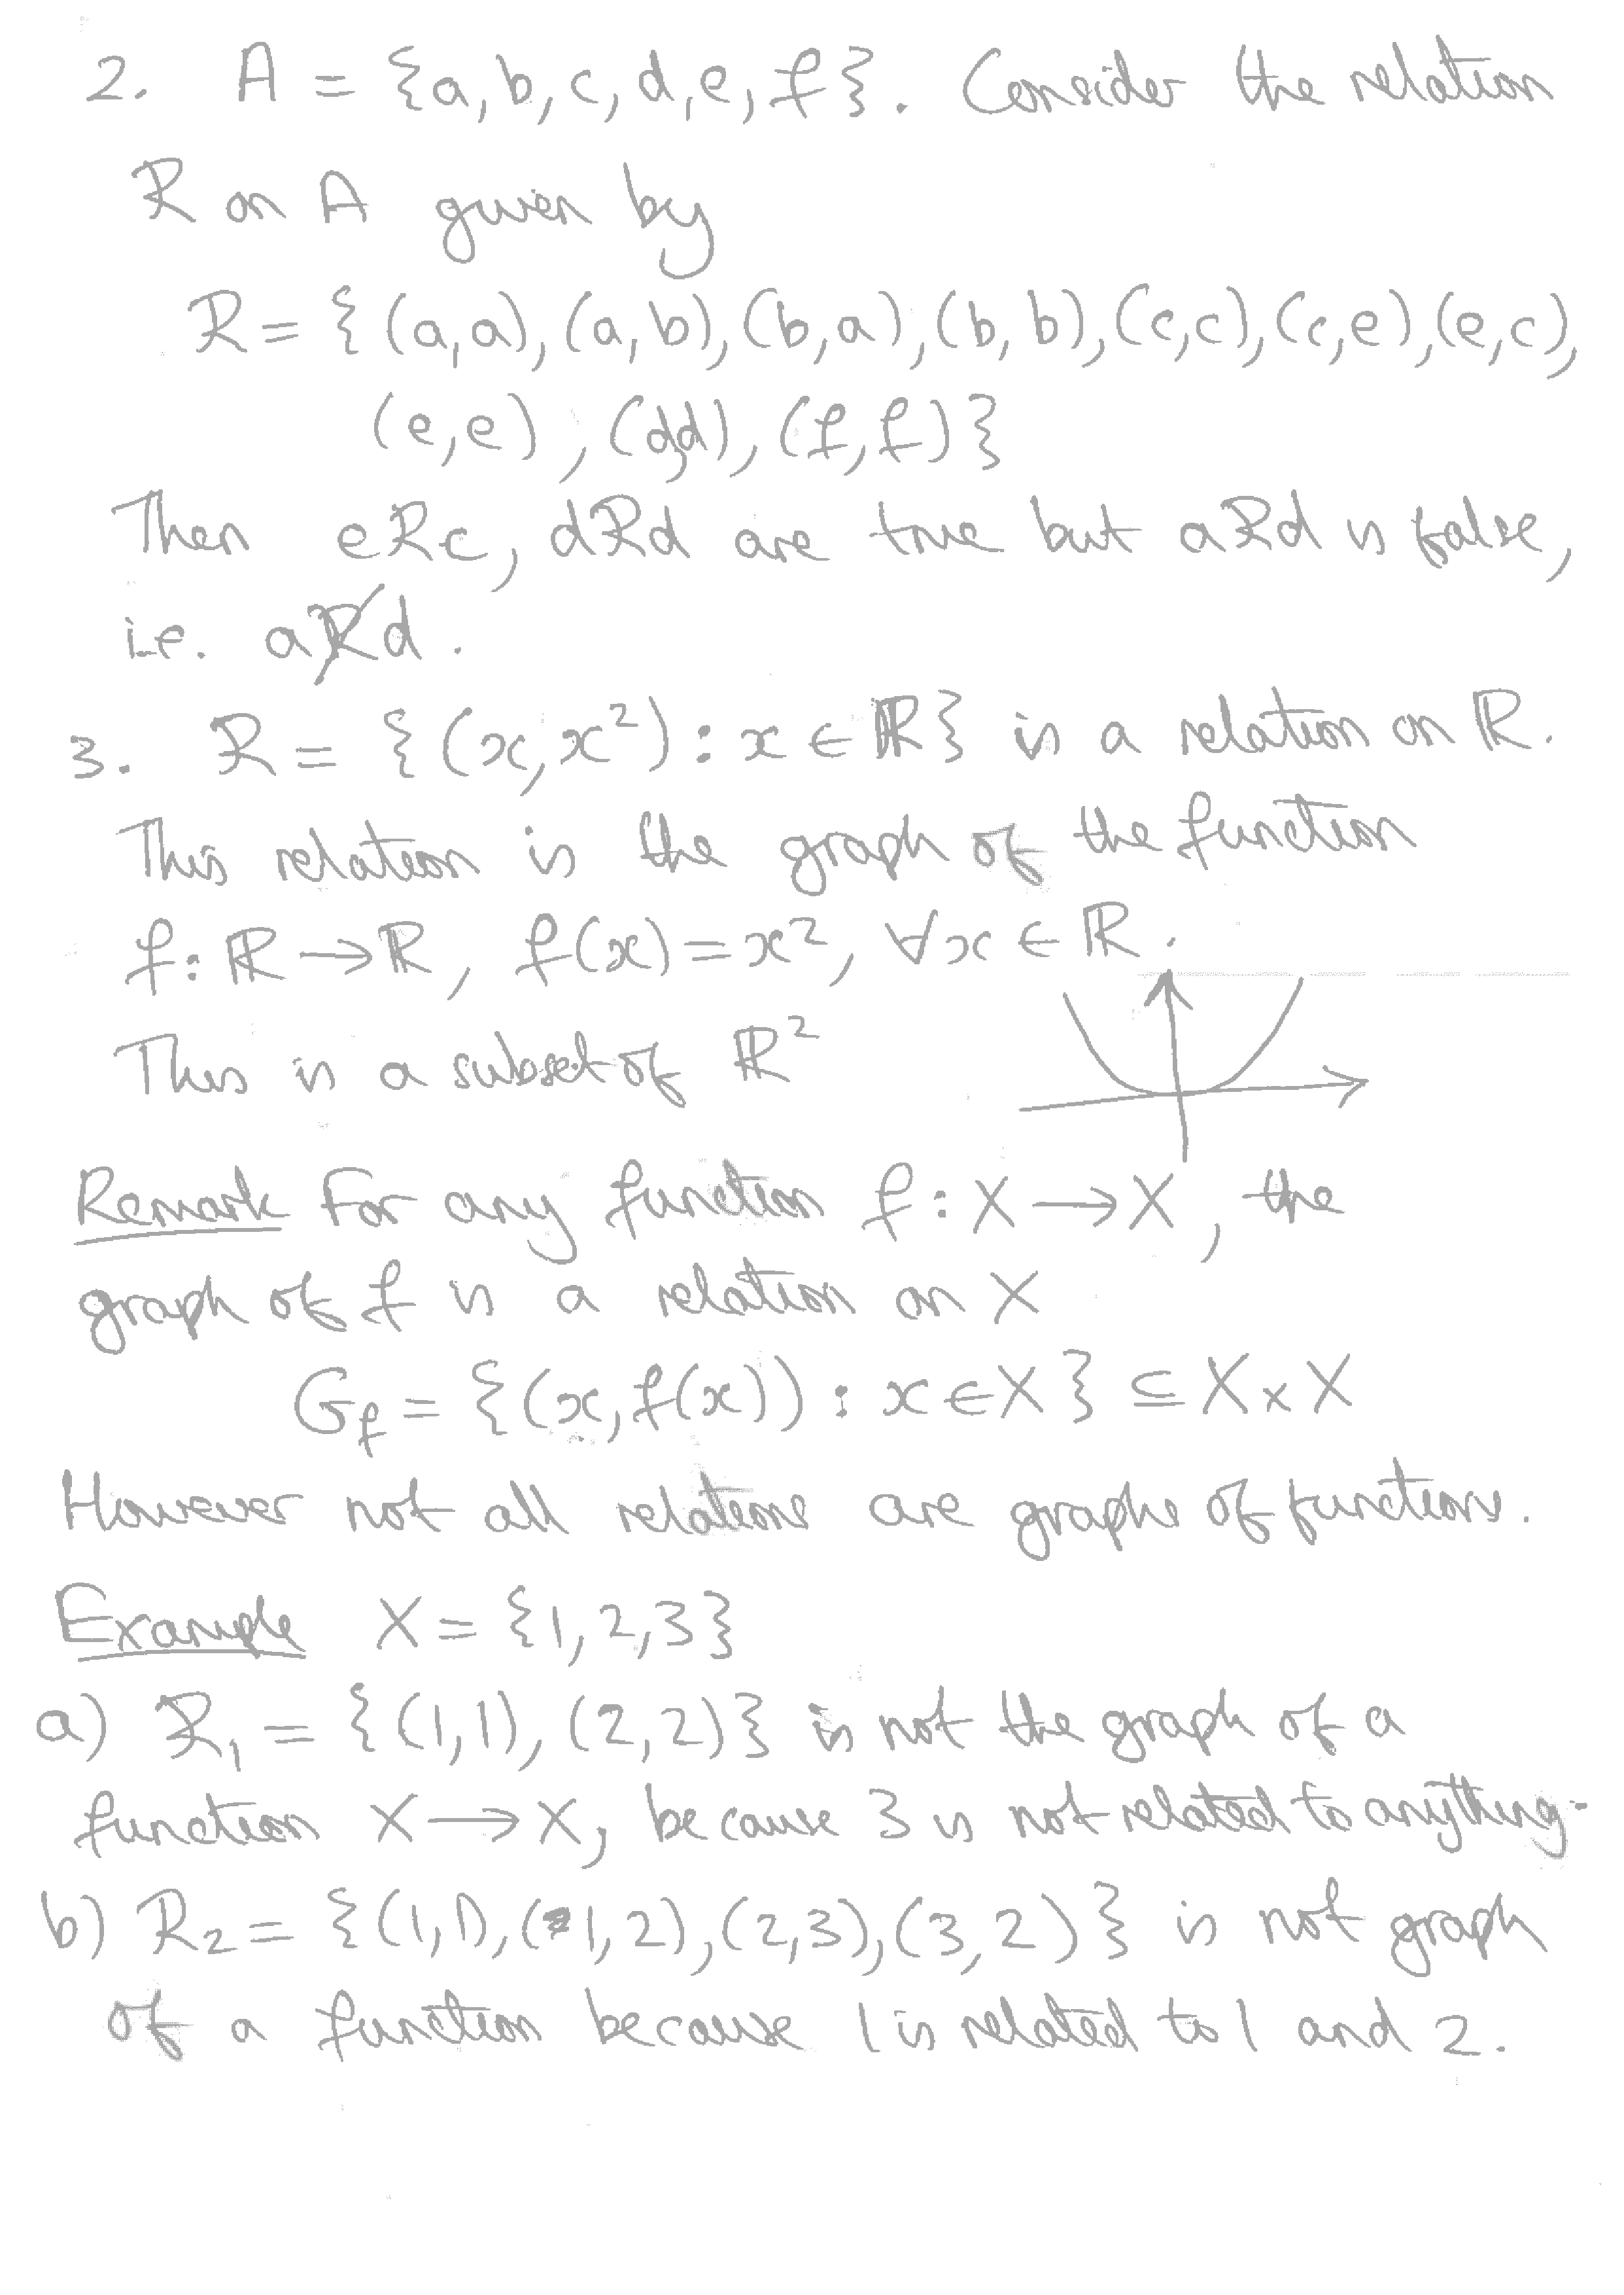 2. A = {a,b,c,d,e,f}. Consider the relation
R on A given by
R = {(a,a),(a,b),(b,a),(b,b),(c,c),(c,e),(e,c),
(e,e),(d,d),(f,f)}
Then eRc, dRd are true but aRd is false,
i.e. aR̸d.
3. R = {(x,x²) : x ∈ ℝ} is a relation on ℝ.
This relation is the graph of the function
f: ℝ → ℝ, f(x) = x², ∀x ∈ ℝ.
This is a subset of ℝ²
Remark For any function f : X → X, the
graph of f is a relation on X
G_f = {(x,f(x)) : x ∈ X} ⊆ X × X
However not all relations are graphs of functions.
Example X = {1,2,3}
a) R₁ = {(1,1), (2,2)} is not the graph of a
function X → X, because 3 is not related to anything.
b) R₂ = {(1,1),(1,2),(2,3),(3,2)} is not graph
of a function because 1 is related to 1 and 2.